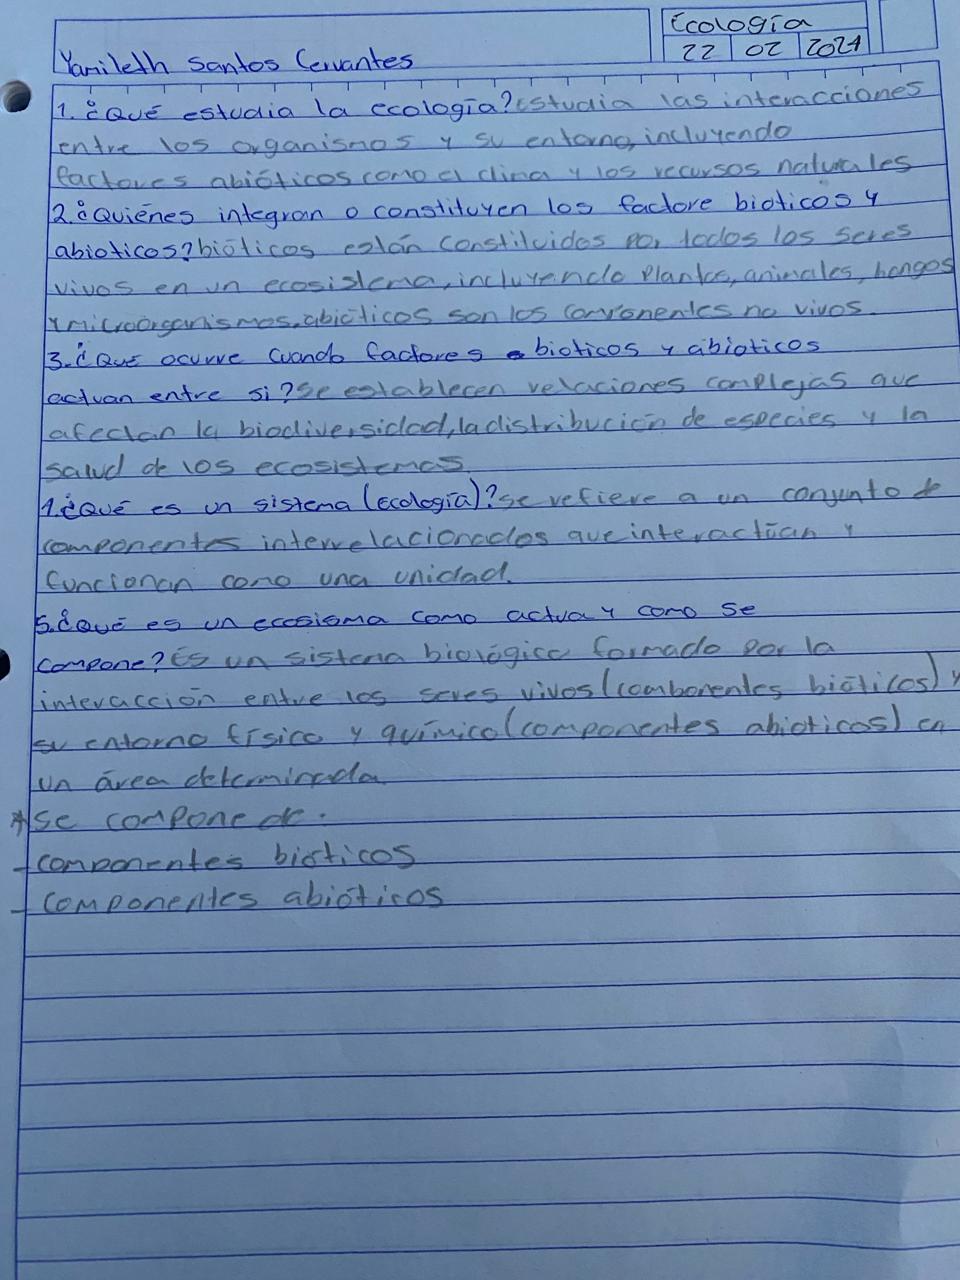 Ecología
Yamileth Santos Cervantes
22 02 2024
1. ¿Qué estudia la ecología? Estudia las interacciones
entre los organismos y su entorno, incluyendo
factores abióticos como el clima y los recursos naturales
2. ¿Quiénes integran o constituyen los factore bioticos y
abioticos? bióticos están constituidos por todos los seres
vivos en un ecosistema, incluyendo plantas, animales, hongos
y microorganismos, abióticos son los componentes no vivos.
3. ¿Que ocurre cuando factores bioticos y abioticos
actuan entre si? Se establecen relaciones complejas que
afectan la biodiversidad, la distribución de especies y la
salud de los ecosistemas
4. ¿Qué es un sistema (ecología)? se refiere a un conjunto de
componentes interrelacionados que interactúan y
funcionan como una unidad.
5. ¿Qué es un ecosisma como actua y como se
compone? Es un sistema biológico formado por la
interacción entre los seres vivos (componentes bióticos) y
su entorno físico y químico (componentes abioticos) en
un área determinada
* Se compone de.
- componentes bióticos
- componentes abióticos